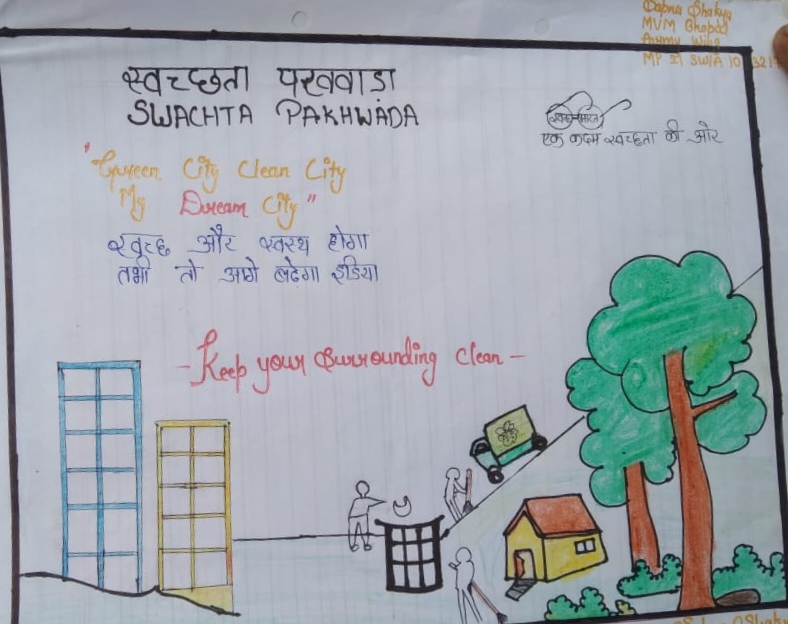 Sapna Shakya
MVM Bhopal
Army Wing
स्वच्छता पखवाडा
SWACHTA PAKHWADA
स्वच्छ भारत
एक कदम स्वच्छता की ओर
"Green City Clean City
My Dream City"
स्वच्छ और स्वस्थ होगा
तभी तो आगे बढेगा इंडिया
- Keep your Surrounding Clean -